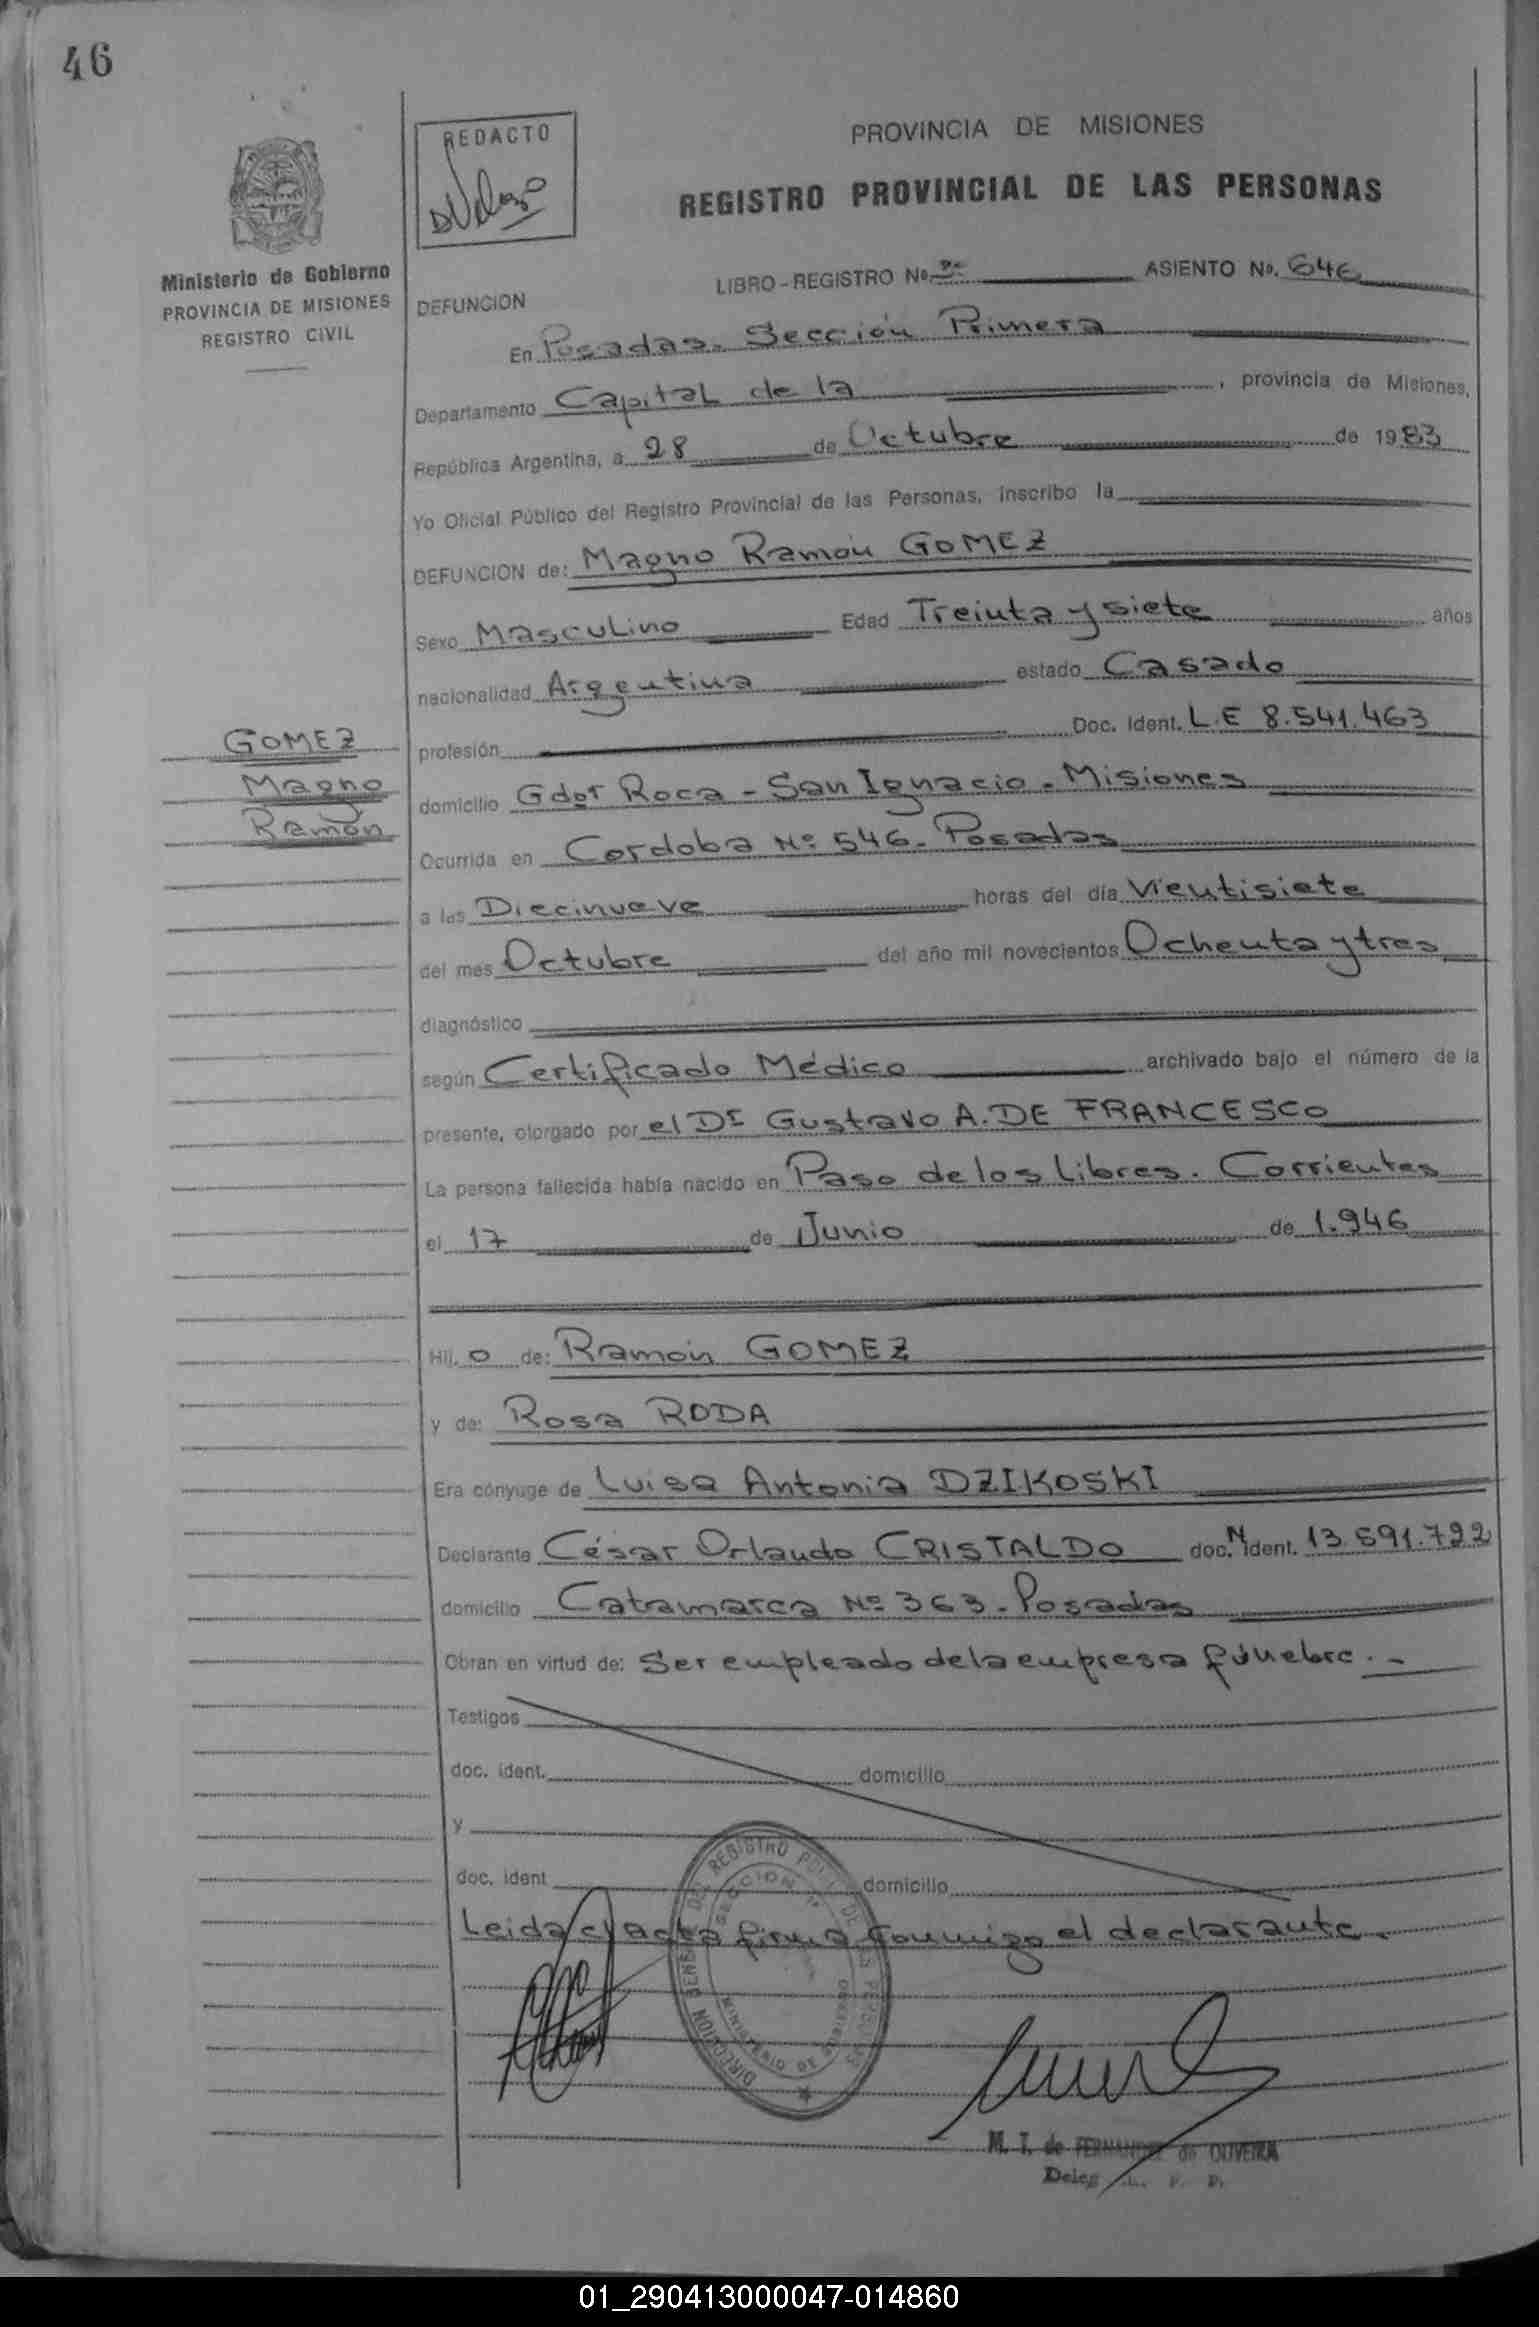 46
REDACTO
PROVINCIA DE MISIONES
REGISTRO PROVINCIAL DE LAS PERSONAS
Ministerio de Gobierno
PROVINCIA DE MISIONES
REGISTRO CIVIL
LIBRO-REGISTRO Nº ASIENTO Nº. 646
DEFUNCION
En Posadas. Sección Primera
Departamento Capital de la , provincia de Misiones,
República Argentina, a 28 de Octubre de 1983
Yo Oficial Público del Registro Provincial de las Personas, inscribo la
DEFUNCION de: Magno Ramón GOMEZ
Sexo Masculino Edad Treinta y siete años
nacionalidad Argentina estado Casado
GOMEZ
Magno
Ramón
profesión Doc. Ident. L.E 8.541.463
domicilio Gdor Roca - San Ignacio. Misiones
Ocurrida en Cordoba Nº 546. Posadas
a las Diecinueve horas del día Vientisiete
del mes Octubre del año mil novecientos Ochenta y tres
diagnóstico
según Certificado Médico archivado bajo el número de la
presente, otorgado por el Dr Gustavo A. DE FRANCESCO
La persona fallecida había nacido en Paso de los Libres. Corrientes
el 17 de Junio de 1.946
Hij o de: Ramón GOMEZ
y de: Rosa RODA
Era cónyuge de Luisa Antonia DZIKOSKI
Declarante César Orlando CRISTALDO doc. N ident. 13.691.722
domicilio Catamarca Nº 363. Posadas
Obran en virtud de: Ser empleado de la empresa fúnebre.-
Testigos
doc. ident. domicilio
y
doc. ident domicilio
Leida el acta firma conmigo el declarante.
DIRECCION GENERAL DEL REGISTRO DE LAS PERSONAS
SECCION 1ª
MINISTERIO DE GOBIERNO
M. T. de FERNANDEZ de OLIVEIRA
Deleg
01_290413000047-014860